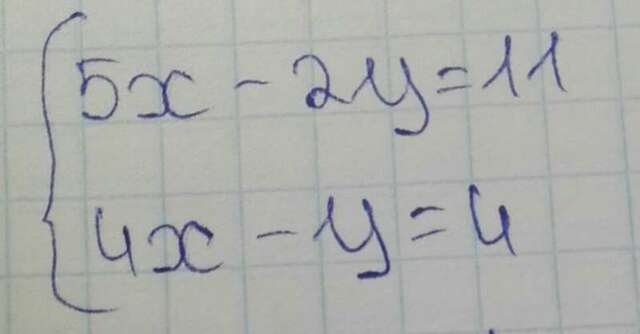 5x - 2y = 11
4x - y = 4